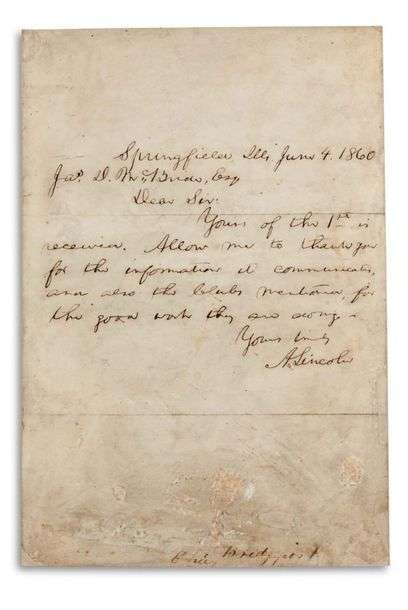 Springfield Ills June 4. 1860
Jas. D. McBride, Esq
Dear Sir:
Yours of the 1st is
received. Allow me to thank you
for the information it communicates,
and also the clubs mentioned, for
the good work they are doing.
Yours truly
A. Lincoln
Bridgeport